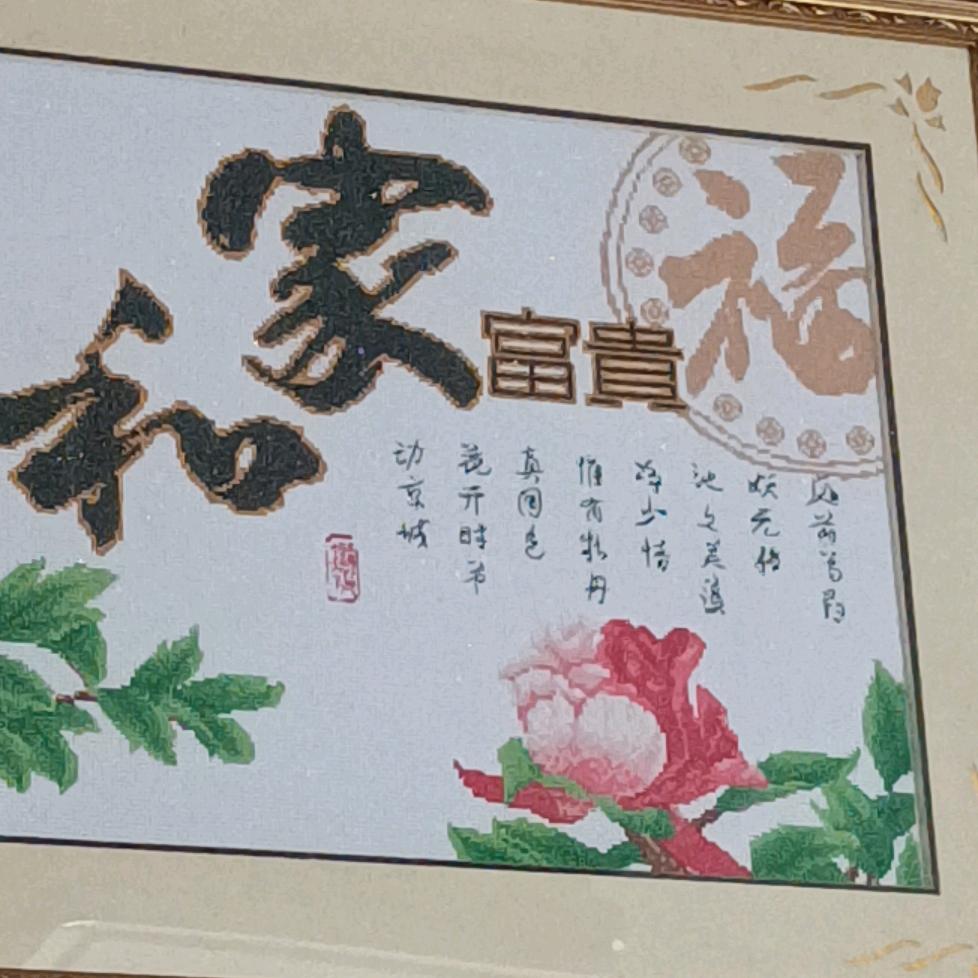 福
家和
富貴
庭前芍药
妖无格
池上芙蕖
净少情
惟有牡丹
真国色
花开時节
动京城